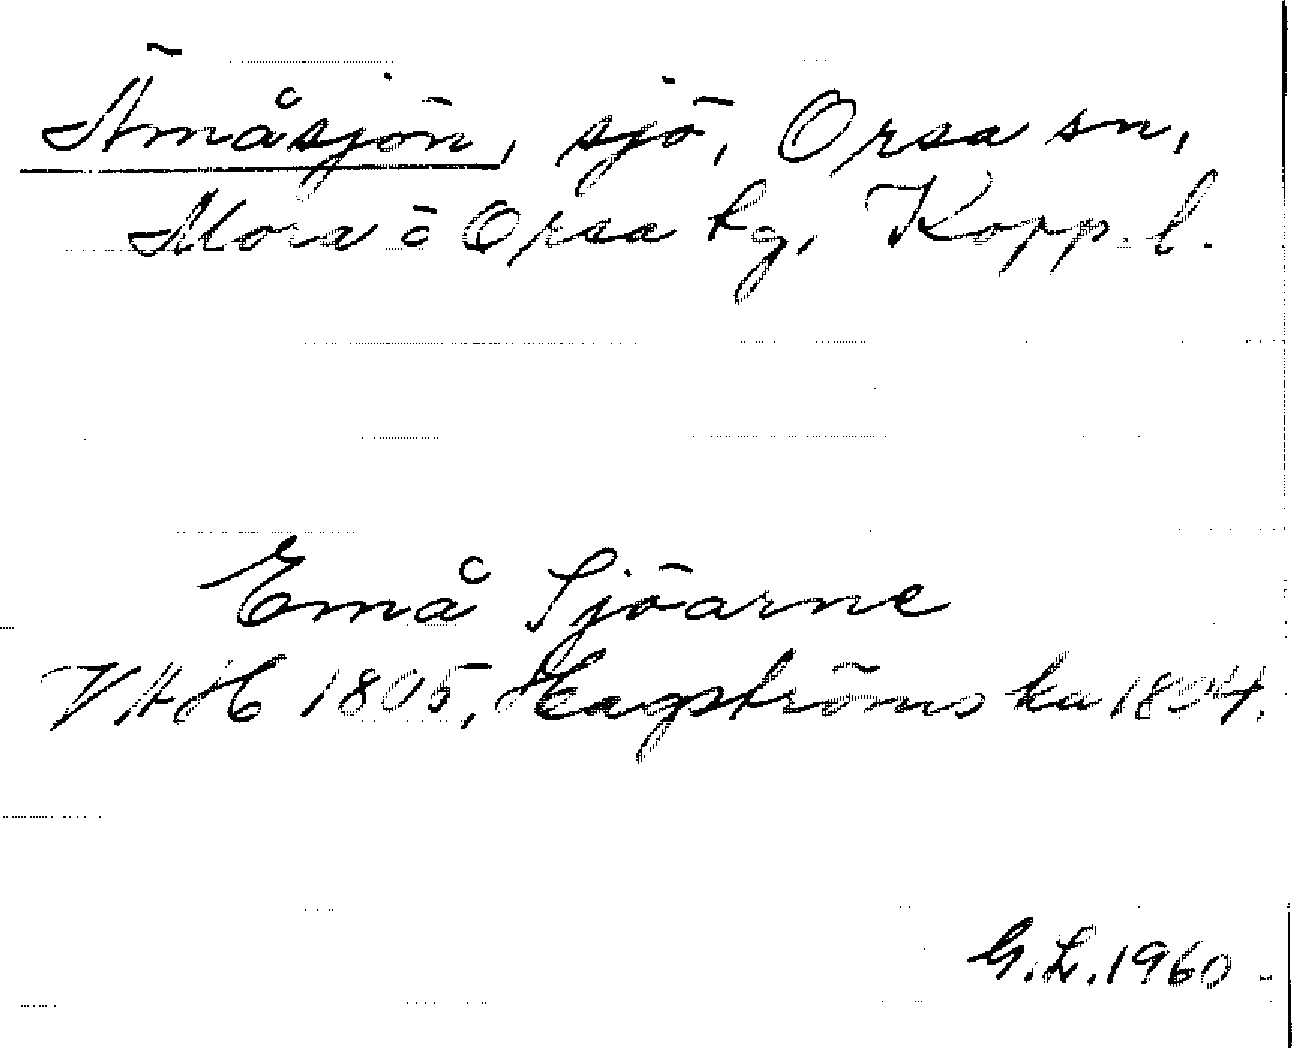 Ämåsjön, sjö, Orsa sn,
Mora o Orsa tg, Kopp. l.
Emå Sjöarne
VAH 1805, Hagströms ka 1804.
G.L. 1960